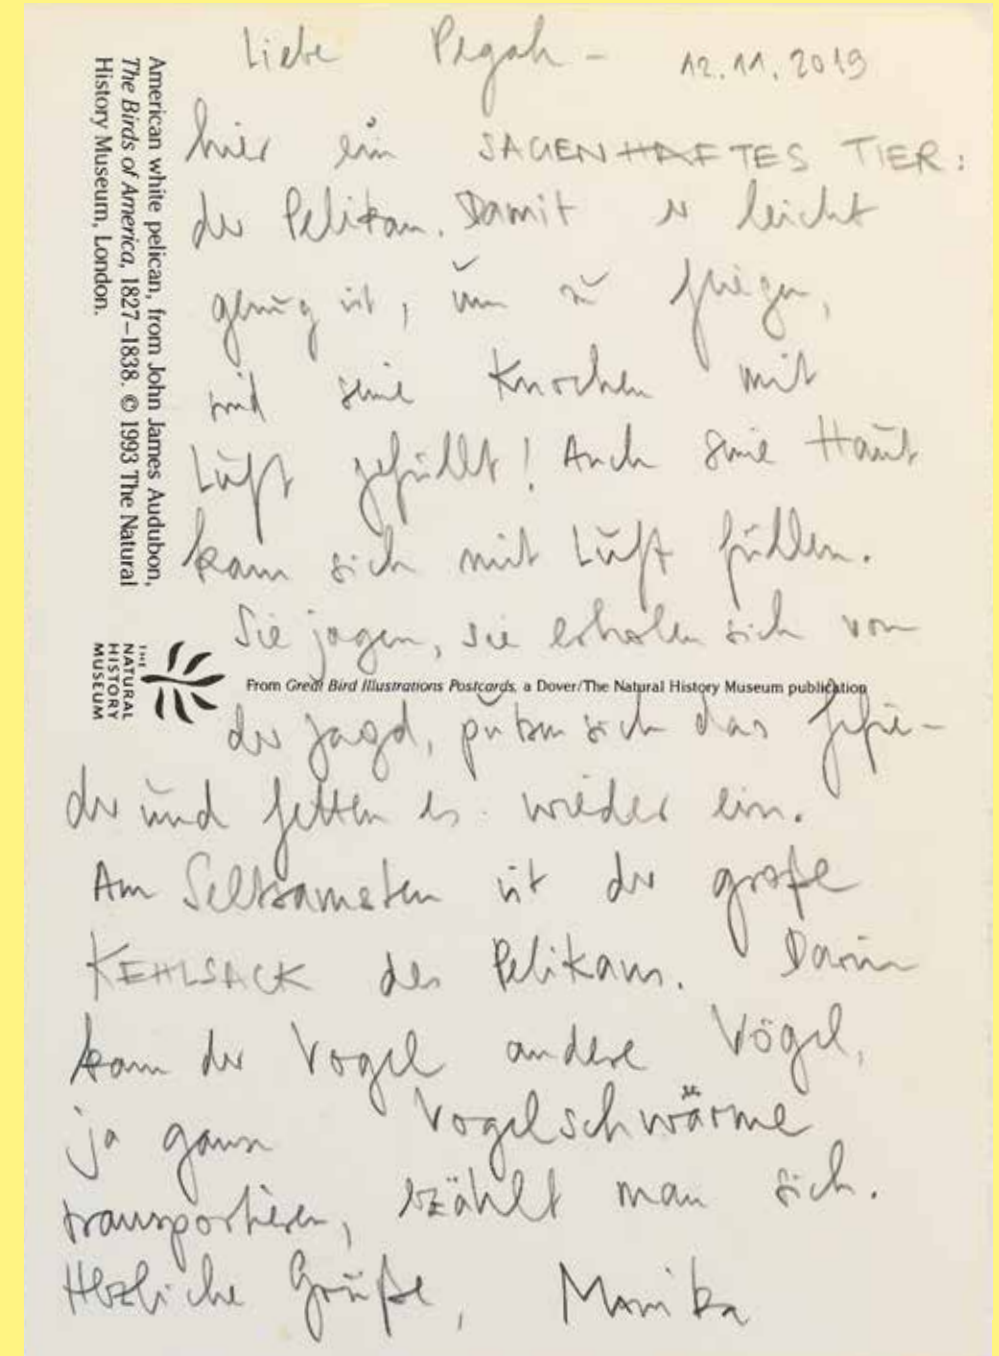 Liebe Pegah – 12.11.2019
hier ein SAGENHAFTES TIER:
der Pelikan. Damit er leicht
genug ist, um zu fliegen,
sind seine Knochen mit
Luft gefüllt! Auch seine Haut
kann sich mit Luft füllen.
Sie jagen, sie erholen sich von
der Jagd, putzen sich das Gefie-
der und fetten es wieder ein.
Am Seltsamsten ist der große
KEHLSACK des Pelikans. Darin
kann der Vogel andere Vögel,
ja ganze Vogelschwärme
transportieren, erzählt man sich.
Herzliche Grüße, Monika
American white pelican, from John James Audubon,
The Birds of America, 1827–1838. © 1993 The Natural
History Museum, London.
THE
NATURAL
HISTORY
MUSEUM
From Great Bird Illustrations Postcards, a Dover/The Natural History Museum publication